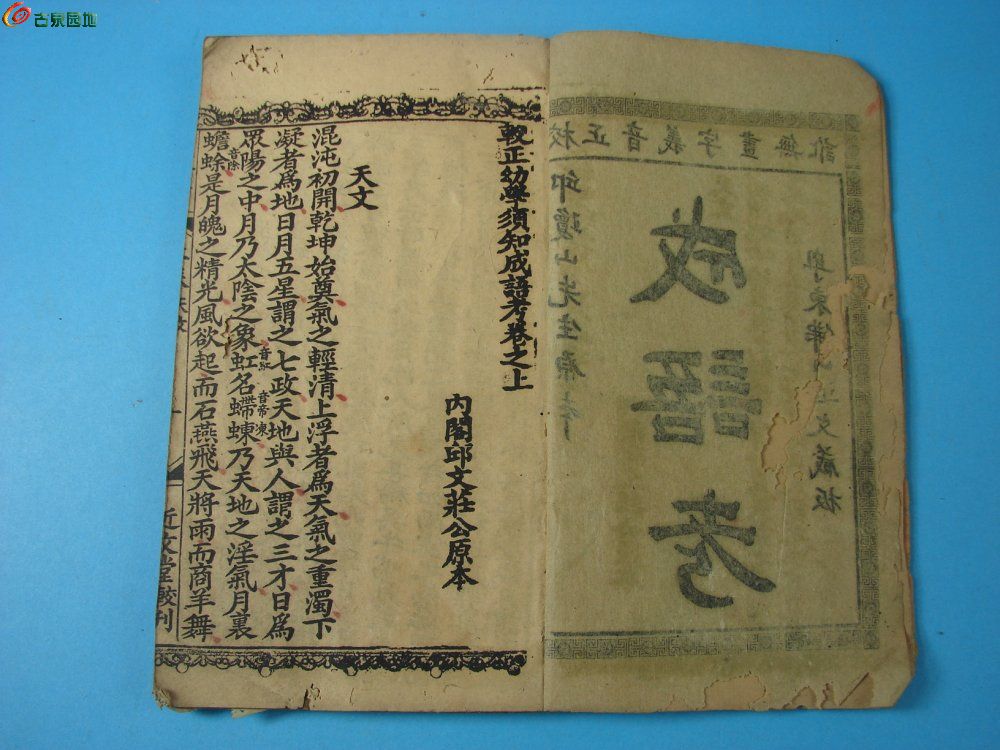 校正音義字畫無訛
邱瓊山先生原本
成語考
粵東佛山文藏板
較正幼學須知成語考卷之上
內閣邱文莊公原本
天文
混沌初開乾坤始奠氣之輕清上浮者爲天氣之重濁下
凝者爲地日月五星謂之七政天地與人謂之三才日爲
眾陽之中月乃太陰之象虹音紅名螮蝀音帝凍乃天地之淫氣月裏
蟾蜍音除是月魄之精光風欲起而石燕飛天將雨而商羊舞
近文堂較刊
古泉园地